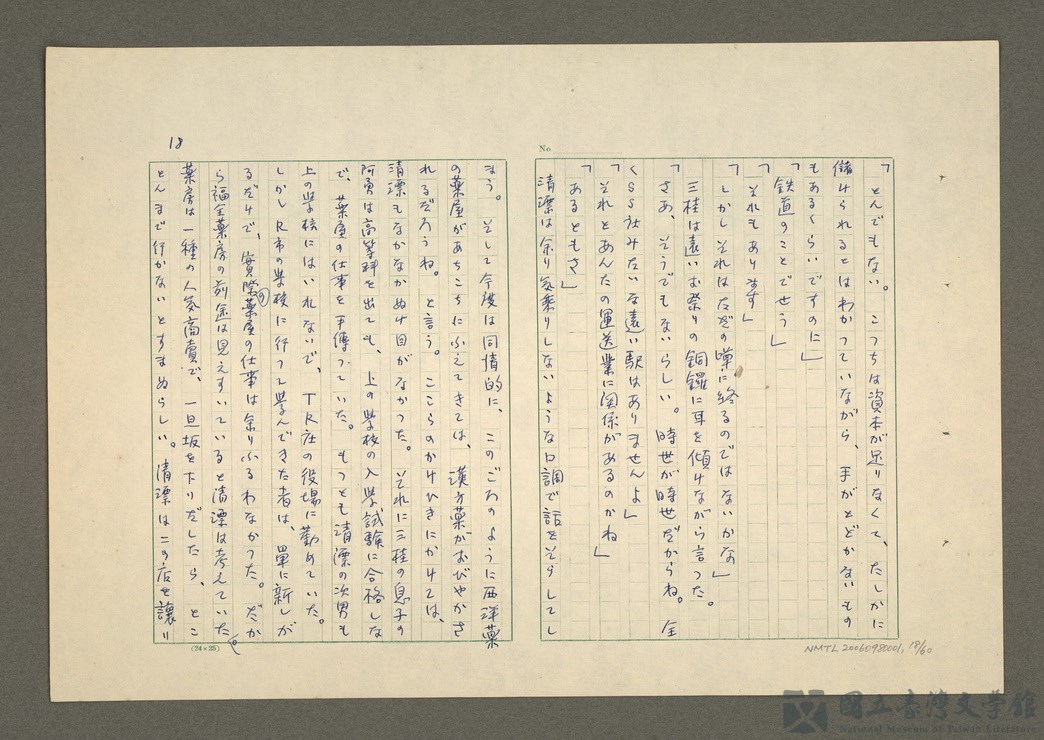 No.
「とんでもない。こっちは資本が足りなくて、たしかに
儲けられるとはわかっていながら、手がとどかないもの
もあるくらいですのに」
「鉄道のことでせう」
「それもあります」
「しかしそれはただの噂に終るのではないかな」
三桂は遠いお祭りの銅鑼に耳を傾けながら言った。
「さあ、そうでもないらしい。時世が時世だからね。全
くSS社みたいな遠い駅はありませんよ」
「それとあんたの運送業に関係があるのかね」
「あるともさ」
清漂は余り気乗りしないような口調で話をそらしてし
18
まう。そして今度は同情的に、このごろのように西洋薬
の薬屋があちこちにふえてきては、漢方薬がおびやかさ
れるだろうね。と言う。ここらのかけひきにかけては、
清漂もなかなかぬけ目がなかった。それに三桂の息子の
阿勇は高等科を出ても、上の学校の入学試験に合格しな
で、薬屋の仕事を手傳っていた。もっとも清漂の次男も
上の学校にはいれないで、TR庄の役場に勤めていた。
しかしR市の学校に行って学んできた者は、單に新しが
るだけで、實際の薬屋の仕事は余りふるわなかった。だか
ら福全薬房の前途は見えすいていると清漂は考えていた。
薬房は一種の人気商賣で、一旦坂を下りだしたら、とこ
とんまで行かないとすまぬらしい。清漂はこの店を讓り
(24×25)
NMTL20060980001, 18/60
國立臺灣文學館
National Museum of Taiwan Literature